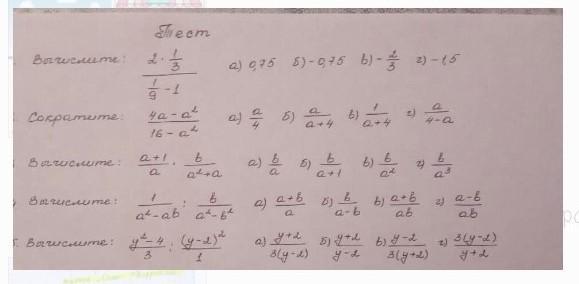 Тест
Вычислите: (2 · 1/3)/(1/9 - 1) а) 0,75 б) -0,75 в) -2/3 г) -1,5
Сократите: (4a - a²)/(16 - a²) а) a/4 б) a/(a+4) в) 1/(a+4) г) a/(4-a)
Вычислите: (a+1)/a · b/(a²+a) а) b/a б) b/(a+1) в) b/a² г) b/a³
Вычислите: 1/(a²-ab) : b/(a²-b²) а) (a+b)/a б) b/(a-b) в) (a+b)/(ab) г) (a-b)/(ab)
5. Вычислите: (y²-4)/3 : (y-2)²/1 а) (y+2)/(3(y-2)) б) (y+2)/(y-2) в) (y-2)/(3(y+2)) г) 3(y-2)/(y+2)